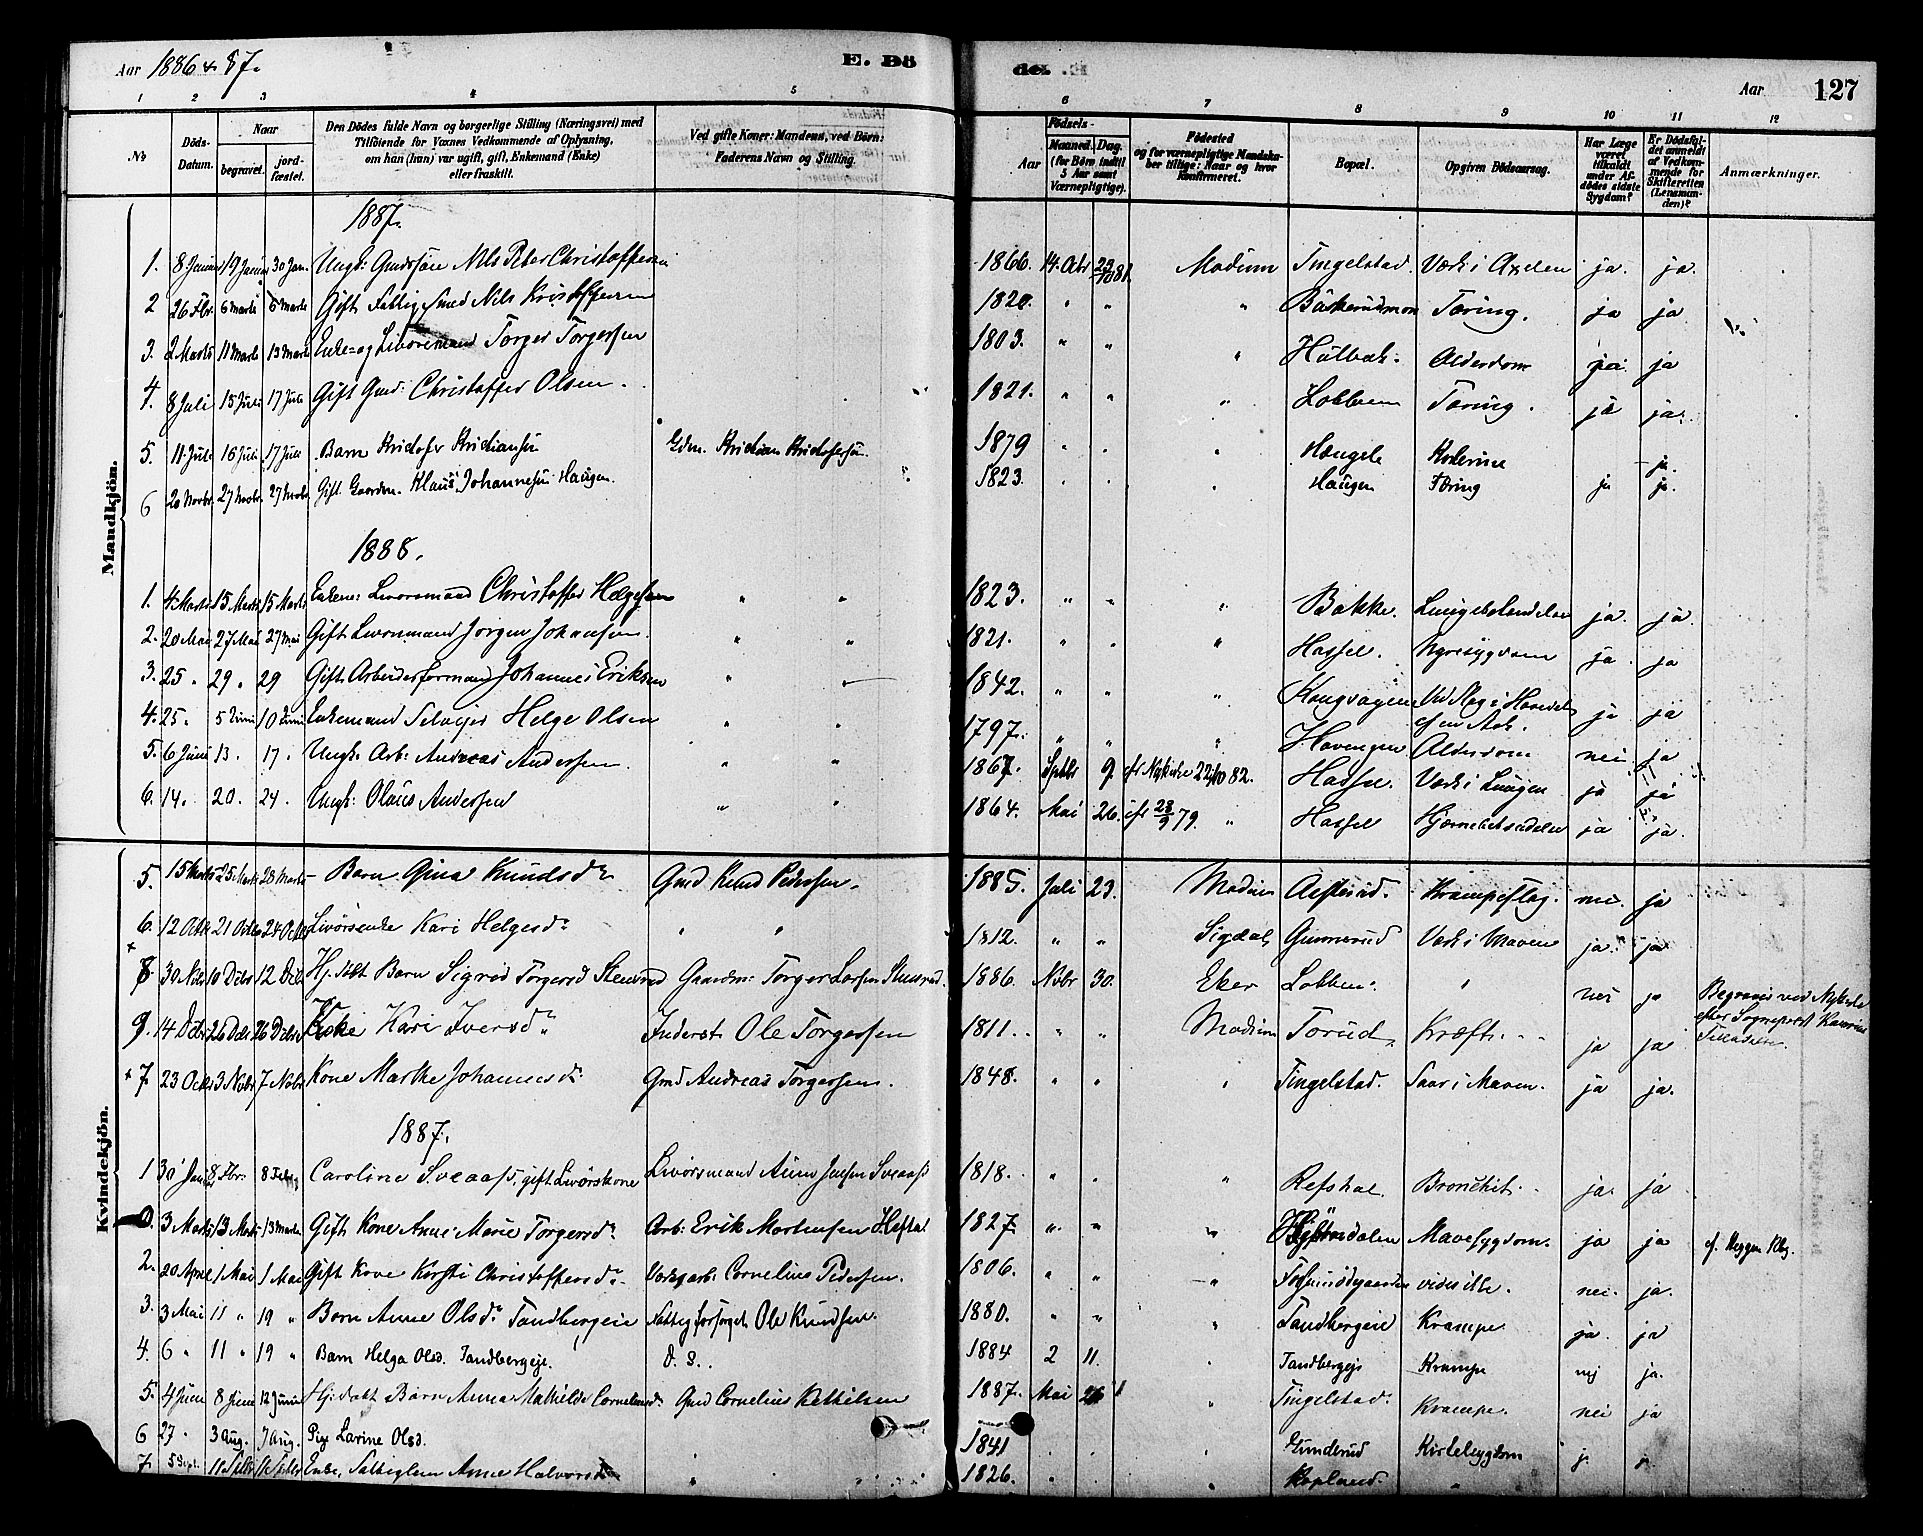 Aar 1886 & 87. E. Dö de. Aar 127
1 2 3 4 5 6 7 8 9 10 11 12
No Döds-Datum. Naar begravet. jordfæstet. Den Dödes fulde Navn og borgerlige Stilling (Næringsvei) med Tilföiende for Voxnes Vedkommende af Oplysning, om hun (han) var ugift, gift, Enkemand (Enke) eller fraskilt. Ved gifte Koner: Mandens, ved Börn: Faderens Navn og Stilling. Födsels- Aar Maaned. Dag. (for Börn indtil 5 Aar samt Værnepligtige). Födested og for værnepligtige Mandskaber tillige: Naar og hvor konfirmeret. Bopæl. Opgiven Dödsaarsag. Har Læge været tilkaldt under Afdödes sidste Sygdom? Er Dödsfaldet anmeldt af Vedkommende for Skifteretten (Lensmanden)? Anmærkninger.
Mandkjön.
1887.
1. 8 Januar 19 Januar 30 Jan. Ungk: Gmdssön Nils Peter Christoffersen 1866 14. Modum Tingelstad. Værk i Axelen ja. ja.
2 26 Fbr. 6 Marts 6 Marts Gift Fattig Smed Nils Kristoffersen 1820 " " " Bækkerudmoen Tæring. ja ja
3. 2 Marts 11 Marts 13 Marts Enke- og Livöremand Torger Torgersen 1803. " " " Hulbak. Alderdom ja ja
4. 8 Juli 15 Juli 17 Juli Gift Gmd: Christoffer Olsen. 1821. " " " Lobben Tæring. ja ja.
5. 11. Juli 16 Juli 17 Juli Barn Kristofer Kristiansen Gdm. Kristian Kristofersen. 1879 " " " Hængsle Koderine ja.
6 20 Novbr. 27 Novbr. 27 Novbr. Gift Gaardm. Klaus Johannesen Haugen. 1823. " Haugen Tæring ja ja.
1888.
1. 4 Marts 15 Marts 15 Marts Enkem: Livörsmand Christoffer Helgesen " " 1823. " " " Bakke. Lungebetændelse ja. ja.
2. 20 Mai 27 Mai 27 Mai Gift Livörsmand Jörgen Johansen. " " 1821. " " " Hassel. Nyresygdom ja. ja
3. 25 " 29 " 29 Gift Arbeidsformand Johannes Eriksen " " 1842. " " " Kongvagen Ved Slag i Hovedet af en Ask. ja ja
4. 25. 5 Juni 10 Juni Enkemand Selveier Helge Olsen " " 1797. " " " Hovengen Alderdom nei ja
5. 6 Juni 13. 17. Ungk. Arb: Andreas Andersen. " " 1867. Septbr 9. cfr Nykirke 22/10 82. Hassel. Værk i Lungen ja ja
6. 14. 20. 24. Ungk: Olaus Andersen " " 1864. Mai 26. cfr 28/9 79. " Hassel Hjernebetændelse ja ja.
Kvindekjön.
5. 15 Marts 25 Marts 28 Marts Barn Gina Knudsdr Gmd Knud Pedersen. 1885. Juli 23. Modum Aasterud. Krampeslag. nei. ja
6. 12 Octb 21 Octbr 24 Octbr Livörsenke Kari Helgesdr " " 1812. " " Sigdal Gunnerud Værk i Maven ja. ja
+ 8 30 Nvbr 10 Dcbr 12 Dcbr Hj. döbt Barn Sigrid Torgersd Stensrud Gaardm: Torger Larsen Stensrud. 1886. Nvbr 30. Eker Lobben. " nei ja Begraves ved Nykirke efter Sognepræst
9. 14 Dcbr 26 Dcbr 26 Dcbr Enke Kari Iversdr Inderst Ole Torgersen 1811. " " Modum Torud Kræft. ja ja Tilladelse.
+ 7. 23 Octbr 3 Nvbr 7 Nvbr Kone Marthe Johannesdr Gmd Andreas Torgersen. 1848. " " " Tingelstad. Saar i Maven. ja ja.
1887.
1 30 Jan 8 Fbr. 8 Febr. Caroline Sveaass, gift Livörskone Livörsmand Jensen Sveaass 1818. " " " Refshal. Bronchit. ja. ja
3 Marts 13 Marts 13 Marts Gift Kone Anne Marie Torgersdr Arb: Erik Mortensen Heftal 1827 " " " Mavesygdom. ja ja cf. Heggen Kbg.
2. 20 April 1 Mai 1 Mai Gift Kone Kirsti Christoffersdr Værksarb. Cornelius Pedersen. 1806. " " " vides ikke. nei. ja.
3. 3 Mai 11 " 19 " Barn Anne Olsdr Tandbergeie Fattigforsörget Ole Knudsen. 1880. " " " Tandbergeie Krampe. ja. ja
4. 6 " 11 " 19 " Barn Helga Olsd. Tandbergeje. d. S. 1884 2 11. " Tandbergeje Krampe nej ja.
5. 4 Juni 8 Juni 12 Juni Hj. döbt Barn Anna Mathilde Corneliusdr Gmd Cornelius Kettilsen 1887. Mai 26 " Tingelstad. Krampe. nei ja
6 27. 3 Aug. 7 Aug. Pige Larine Olsd. 1841 " " " Gunderud Kirtelsygdom j. j.
7. 5 Sept. 11 Sptbr 11 Sptbr Enke, Fattiglem Anne Halvorsdr " " 1826. " Kopland. "